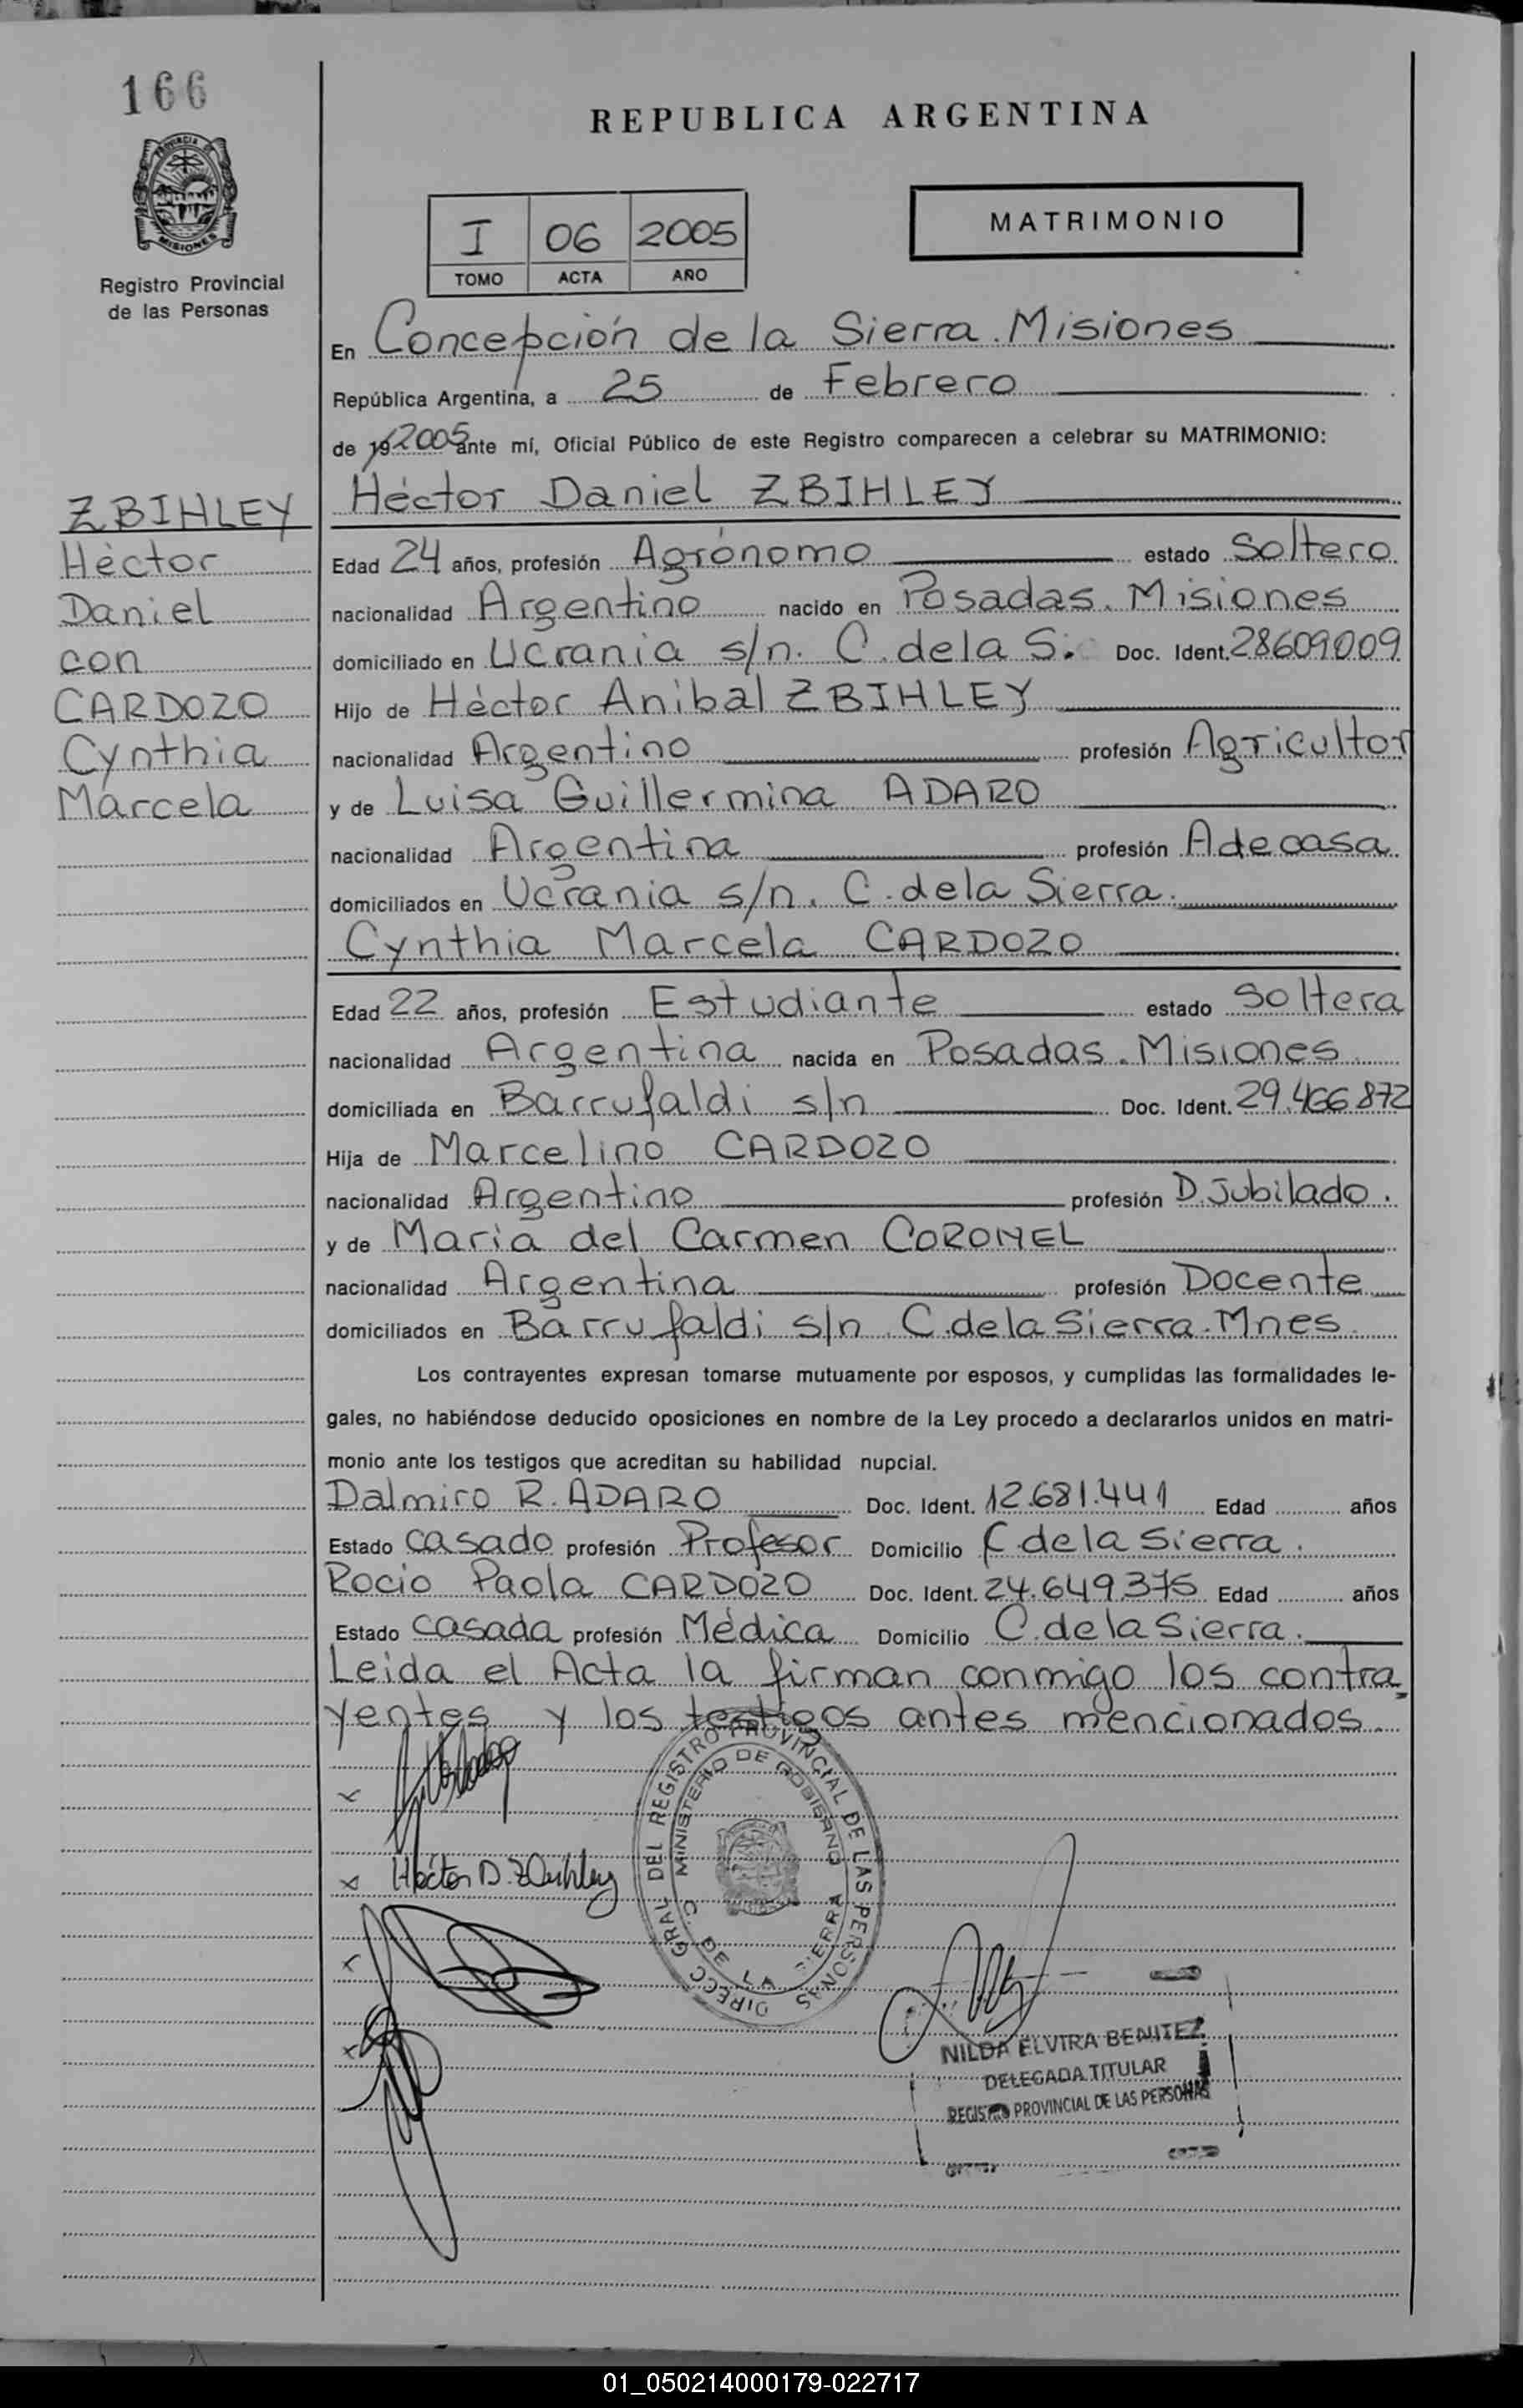 166
REPUBLICA ARGENTINA
PROVINCIA DE
MISIONES
Registro Provincial
de las Personas
I 06 2005
TOMO ACTA AÑO
MATRIMONIO
En Concepción de la Sierra. Misiones
República Argentina, a 25 de Febrero
de 19 2005 ante mí, Oficial Público de este Registro comparecen a celebrar su MATRIMONIO:
Héctor Daniel ZBIHLEY
ZBIHLEY
Héctor
Daniel
con
CARDOZO
Cynthia
Marcela
Edad 24 años, profesión Agrónomo estado Soltero
nacionalidad Argentino nacido en Posadas. Misiones
domiciliado en Ucrania s/n. C. de la S. Doc. Ident. 28609009
Hijo de Héctor Anibal ZBIHLEY
nacionalidad Argentino profesión Agricultor
y de Luisa Guillermina ADARO
nacionalidad Argentina profesión A de casa
domiciliados en Ucrania s/n. C. de la Sierra.
Cynthia Marcela CARDOZO
Edad 22 años, profesión Estudiante estado Soltera
nacionalidad Argentina nacida en Posadas. Misiones
domiciliada en Barrufaldi s/n Doc. Ident. 29.466.872
Hija de Marcelino CARDOZO
nacionalidad Argentino profesión D. Jubilado.
y de Maria del Carmen CORONEL
nacionalidad Argentina profesión Docente
domiciliados en Barrufaldi s/n. C. de la Sierra. Mnes.
Los contrayentes expresan tomarse mutuamente por esposos, y cumplidas las formalidades le-
gales, no habiéndose deducido oposiciones en nombre de la Ley procedo a declararlos unidos en matri-
monio ante los testigos que acreditan su habilidad nupcial.
Dalmiro R. ADARO Doc. Ident. 12.681.441 Edad años
Estado casado profesión Profesor Domicilio C. de la Sierra.
Rocio Paola CARDOZO Doc. Ident. 24.649.375 Edad años
Estado casada profesión Médica Domicilio C. de la Sierra.
Leida el Acta la firman conmigo los contra-
yentes y los testigos antes mencionados.
DIRECC. GRAL. DEL REGISTRO PROVINCIAL DE LAS PERSONAS
MINISTERIO DE GOBIERNO
C. DE LA SIERRA
Héctor D. Zbihley
NILDA ELVIRA BENITEZ
DELEGADA TITULAR
REGISTRO PROVINCIAL DE LAS PERSONAS
01_050214000179-022717